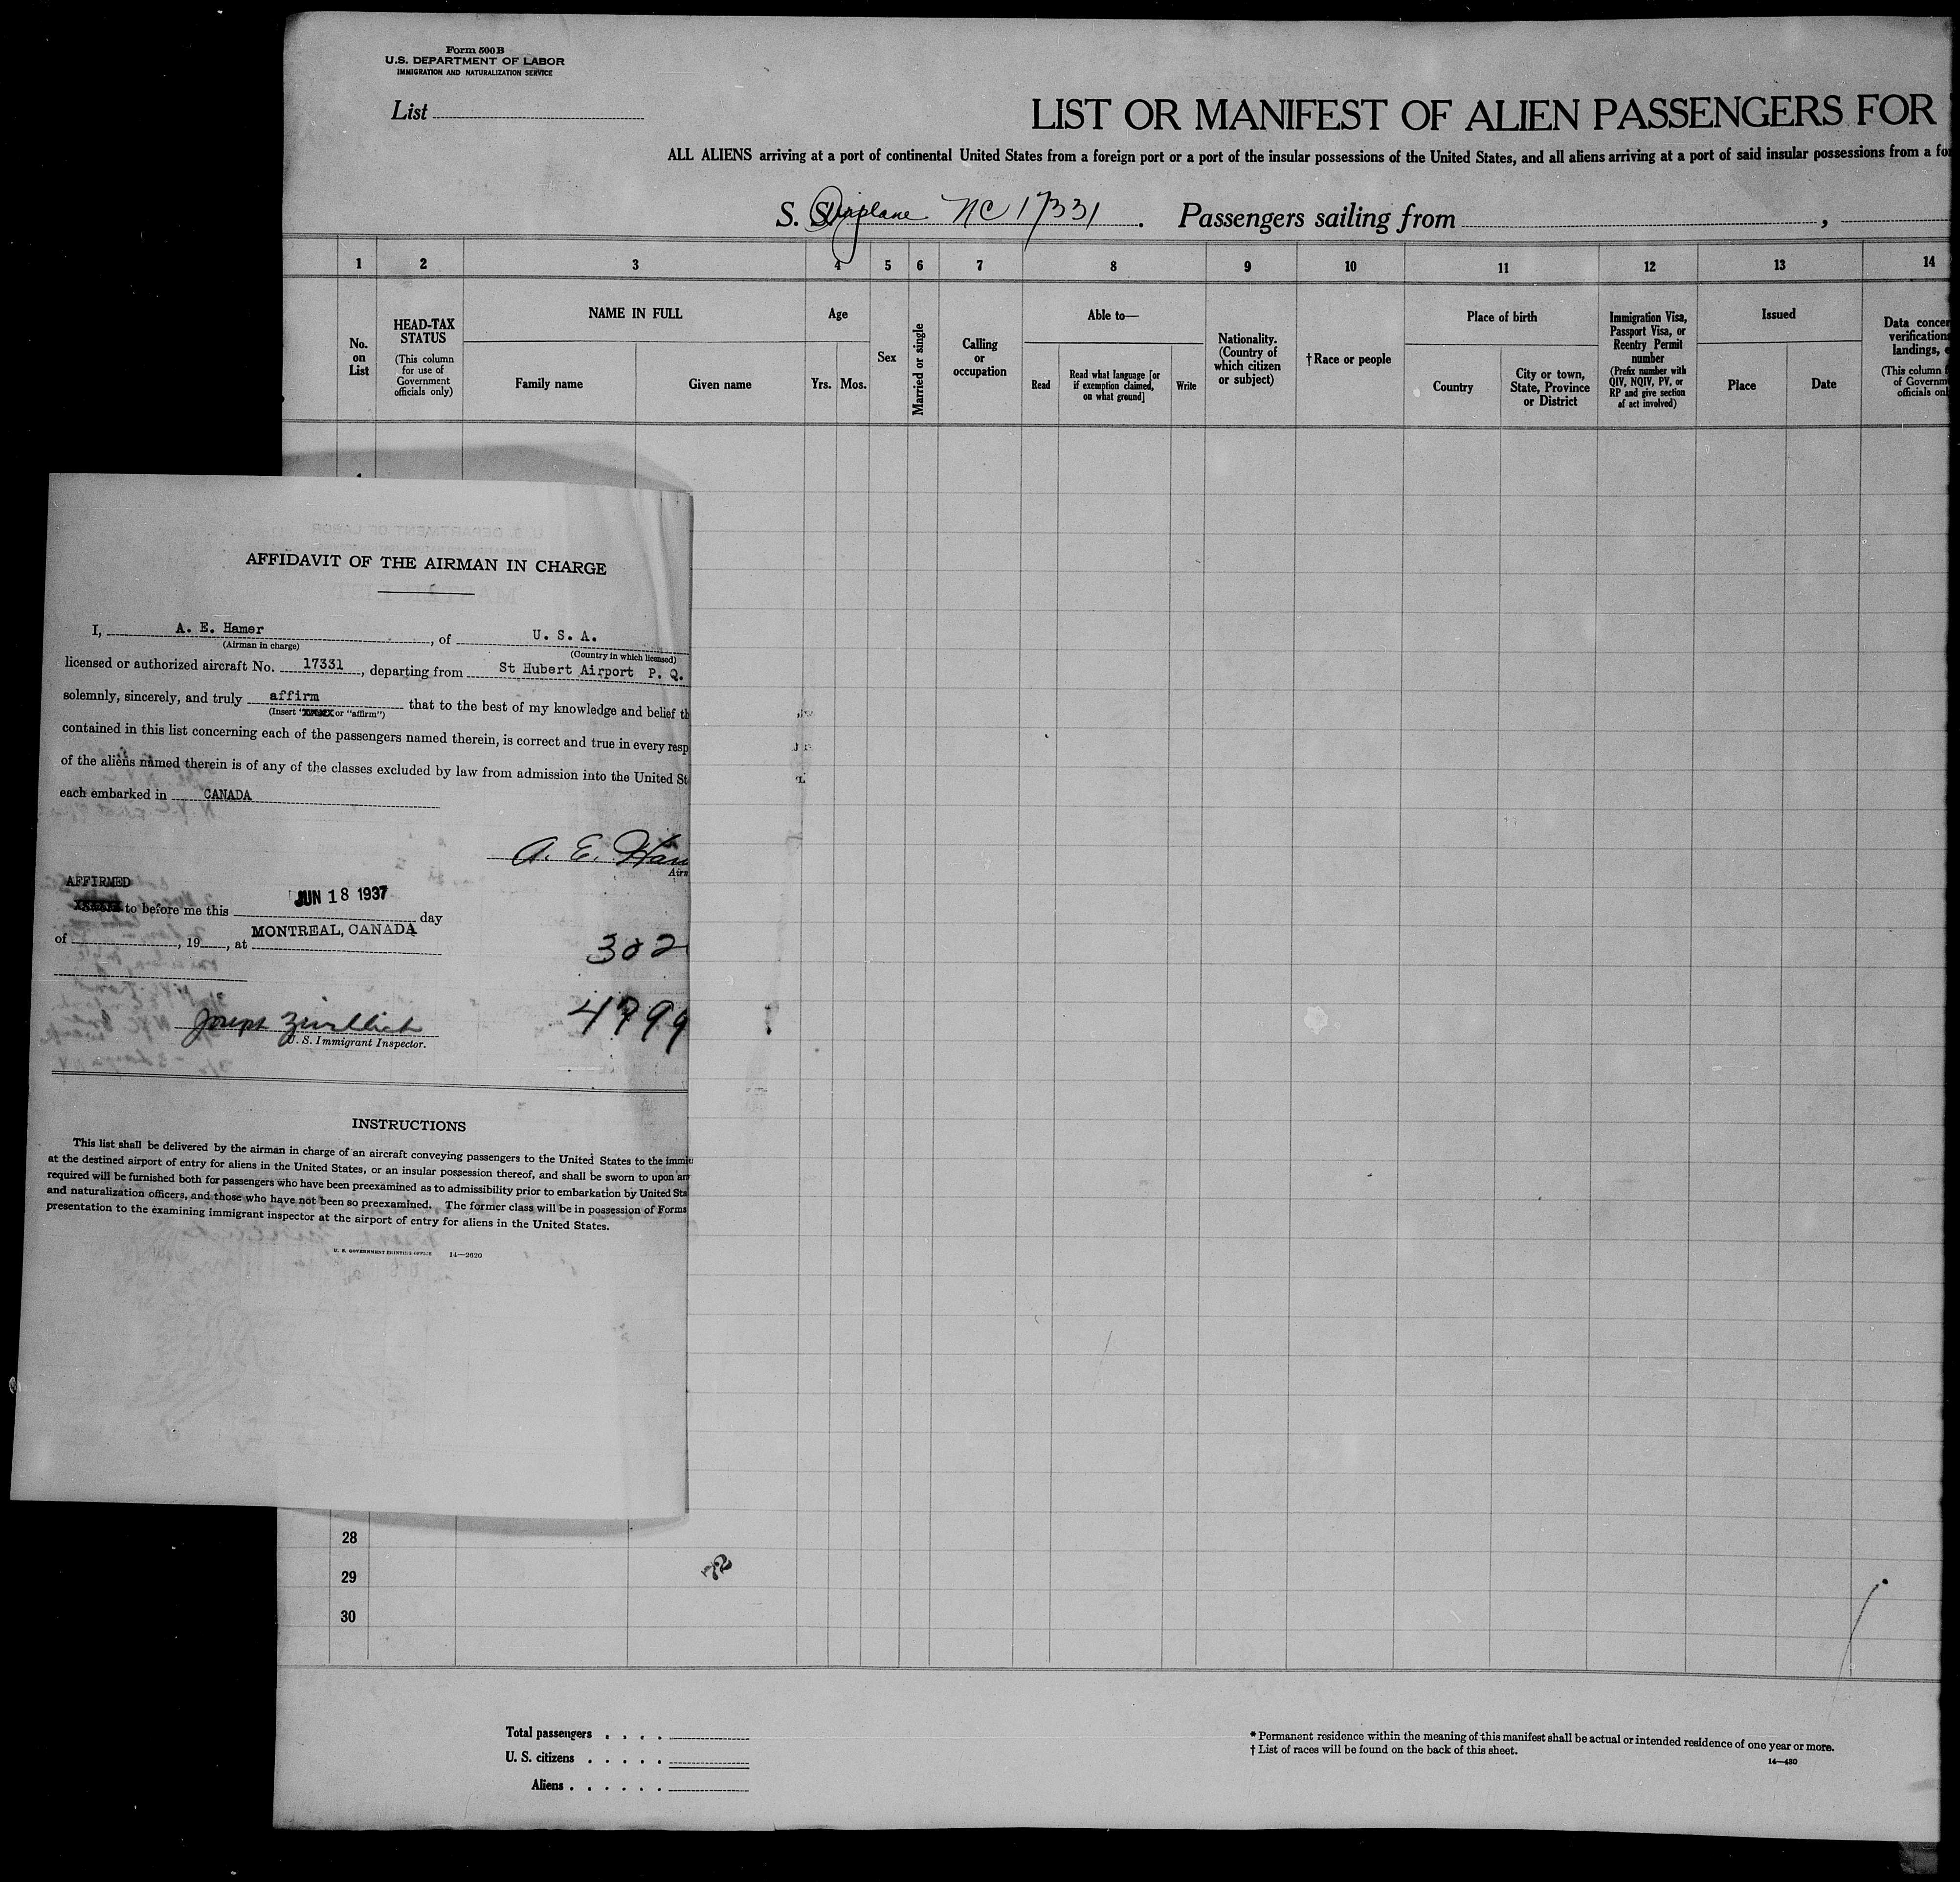 Form 500 B
U.S. DEPARTMENT OF LABOR
IMMIGRATION AND NATURALIZATION SERVICE
List
LIST OR MANIFEST OF ALIEN PASSENGERS FOR
ALL ALIENS arriving at a port of continental United States from a foreign port or a port of the insular possessions of the United States, and all aliens arriving at a port of said insular possessions from a fo
S. S. Airplane NC 17331. Passengers sailing from ,
1 2 3 4 5 6 7 8 9 10 11 12 13 14
No. on List
HEAD-TAX STATUS
(This column for use of Government officials only)
NAME IN FULL
Family name
Given name
Age
Yrs. Mos.
Sex
Married or single
Calling or occupation
Able to—
Read
Read what language [or if exemption claimed, on what ground]
Write
Nationality. (Country of which citizen or subject)
† Race or people
Place of birth
Country
City or town, State, Province or District
Immigration Visa, Passport Visa, or Reentry Permit number
(Prefix number with QIV, NQIV, PV, or RP and give section of act involved)
Issued
Place
Date
Data concer
verification
landings, e
(This column f
of Governm
officials onl
AFFIDAVIT OF THE AIRMAN IN CHARGE
I, A. E. Hamer, of U. S. A.
(Airman in charge) (Country in which licensed)
licensed or authorized aircraft No. 17331, departing from St Hubert Airport P. Q.
solemnly, sincerely, and truly affirm that to the best of my knowledge and belief th
(Insert " or "affirm")
contained in this list concerning each of the passengers named therein, is correct and true in every resp
of the aliens named therein is of any of the classes excluded by law from admission into the United St
each embarked in CANADA
A. E. Ham
Airm
AFFIRMED
to before me this JUN 18 1937 day
of , 19 , at MONTREAL, CANADA
302
4799
Joseph Zwillich
U. S. Immigrant Inspector.
INSTRUCTIONS
This list shall be delivered by the airman in charge of an aircraft conveying passengers to the United States to the immi
at the destined airport of entry for aliens in the United States, or an insular possession thereof, and shall be sworn to upon arr
required will be furnished both for passengers who have been preexamined as to admissibility prior to embarkation by United Sta
and naturalization officers, and those who have not been so preexamined. The former class will be in possession of Forms
presentation to the examining immigrant inspector at the airport of entry for aliens in the United States.
U. S. GOVERNMENT PRINTING OFFICE 14—2620
28
29
30
Total passengers . . . .
U. S. citizens . . . . .
Aliens . . . . . .
* Permanent residence within the meaning of this manifest shall be actual or intended residence of one year or more.
† List of races will be found on the back of this sheet.
14—430